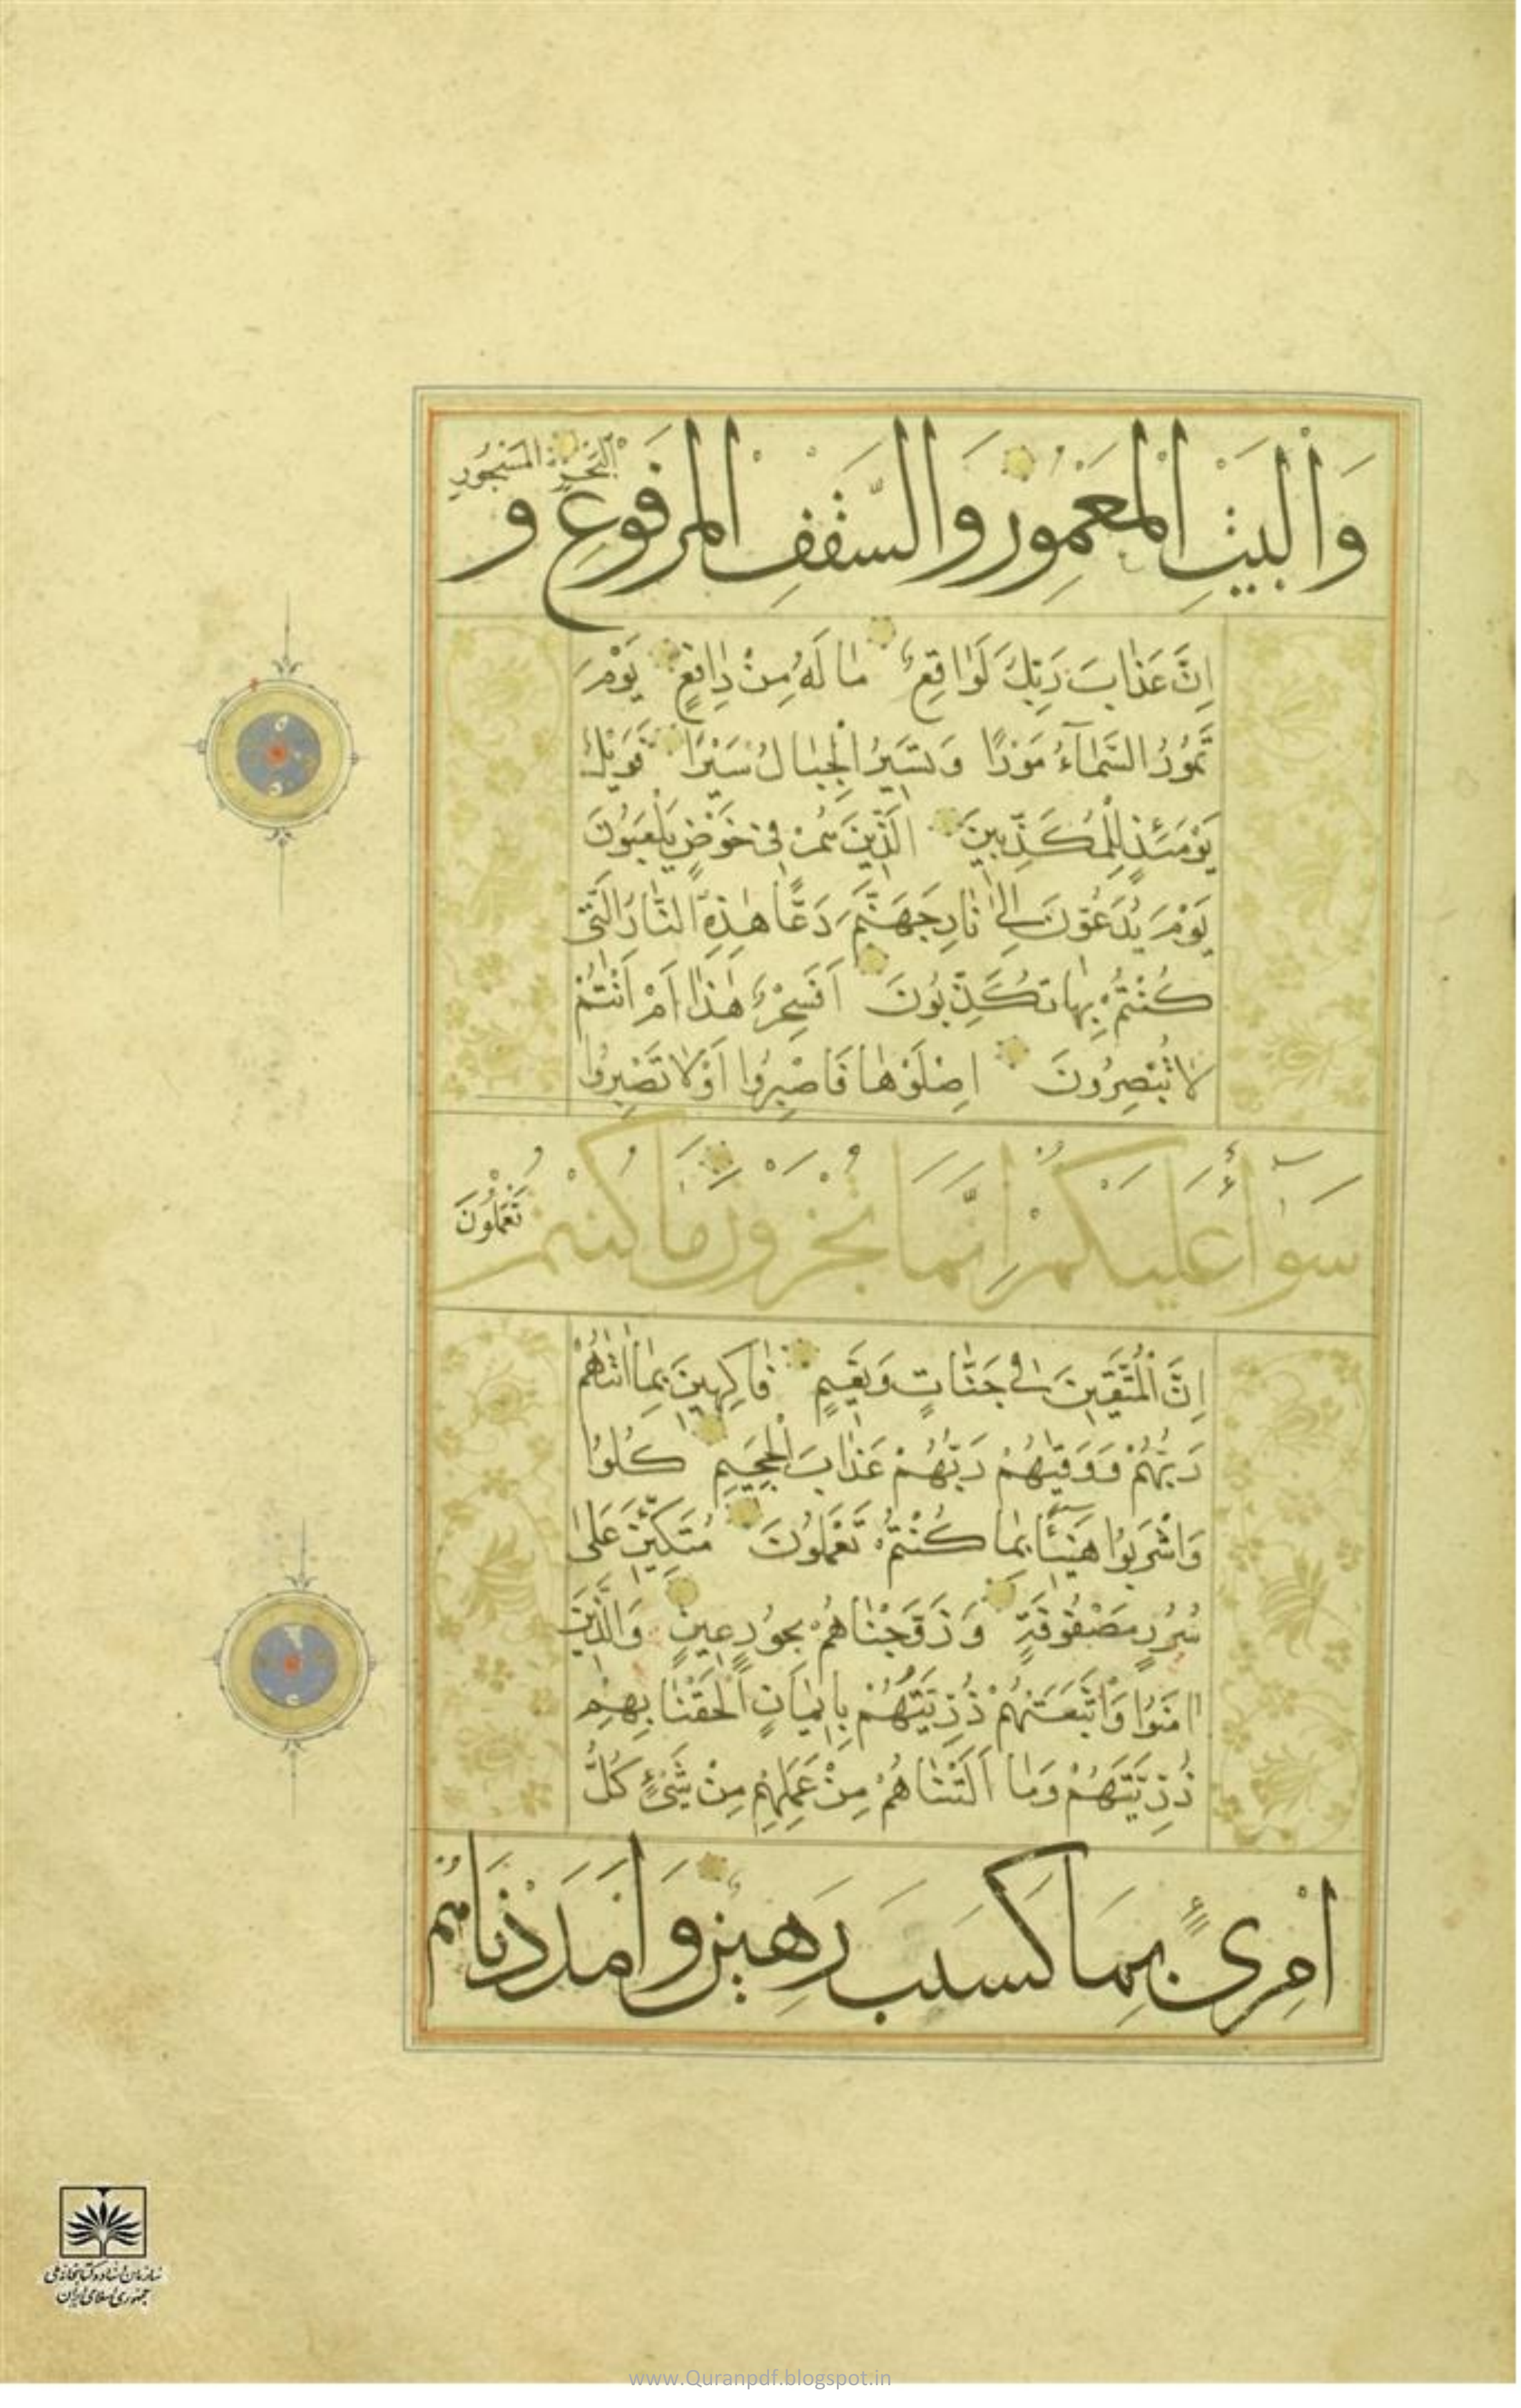 وَالْبَيْتِ الْمَعْمُورِ وَالسَّقْفِ الْمَرْفُوعِ وَ
الْبَحْرِ الْمَسْجُورِ
اِنَّ عَذَابَ رَبِّكَ لَوَاقِعٌ مَا لَهُ مِنْ دَافِعٍ يَوْمَ
تَمُورُ السَّمَآءُ مَوْرًا وَتَسِيرُ الْجِبَالُ سَيْرًا فَوَيْلٌ
يَوْمَئِذٍ لِلْمُكَذِّبِينَ الَّذِينَ هُمْ فِي خَوْضٍ يَلْعَبُونَ
يَوْمَ يُدَعُّونَ اِلٰى نَارِ جَهَنَّمَ دَعًّا هٰذِهِ النَّارُ الَّتِي
كُنْتُمْ بِهَا تُكَذِّبُونَ اَفَسِحْرٌ هٰذَا اَمْ اَنْتُمْ
لَا تُبْصِرُونَ اِصْلَوْهَا فَاصْبِرُوا اَوْ لَا تَصْبِرُوا
سَوَآءٌ عَلَيْكُمْ اِنَّمَا تُجْزَوْنَ مَا كُنْتُمْ
تَعْمَلُونَ
اِنَّ الْمُتَّقِينَ فِي جَنَّاتٍ وَنَعِيمٍ فَاكِهِينَ بِمَا اٰتٰاهُمْ
رَبُّهُمْ وَوَقٰيهُمْ رَبُّهُمْ عَذَابَ الْجَحِيمِ كُلُوا
وَاشْرَبُوا هَنِيٓئًا بِمَا كُنْتُمْ تَعْمَلُونَ مُتَّكِئِينَ عَلٰى
سُرُرٍ مَصْفُوفَةٍ وَزَوَّجْنَاهُمْ بِحُورٍ عِينٍ وَالَّذِينَ
اٰمَنُوا وَاتَّبَعَتْهُمْ ذُرِّيَّتُهُمْ بِاِيمَانٍ اَلْحَقْنَا بِهِمْ
ذُرِّيَّتَهُمْ وَمَا اَلَتْنَاهُمْ مِنْ عَمَلِهِمْ مِنْ شَيْءٍ كُلُّ
امْرِئٍ بِمَا كَسَبَ رَهِينٌ وَاَمْدَدْنَاهُمْ
سازمان اسناد و کتابخانه ملی
جمهوری اسلامی ایران
www.Quranpdf.blogspot.in